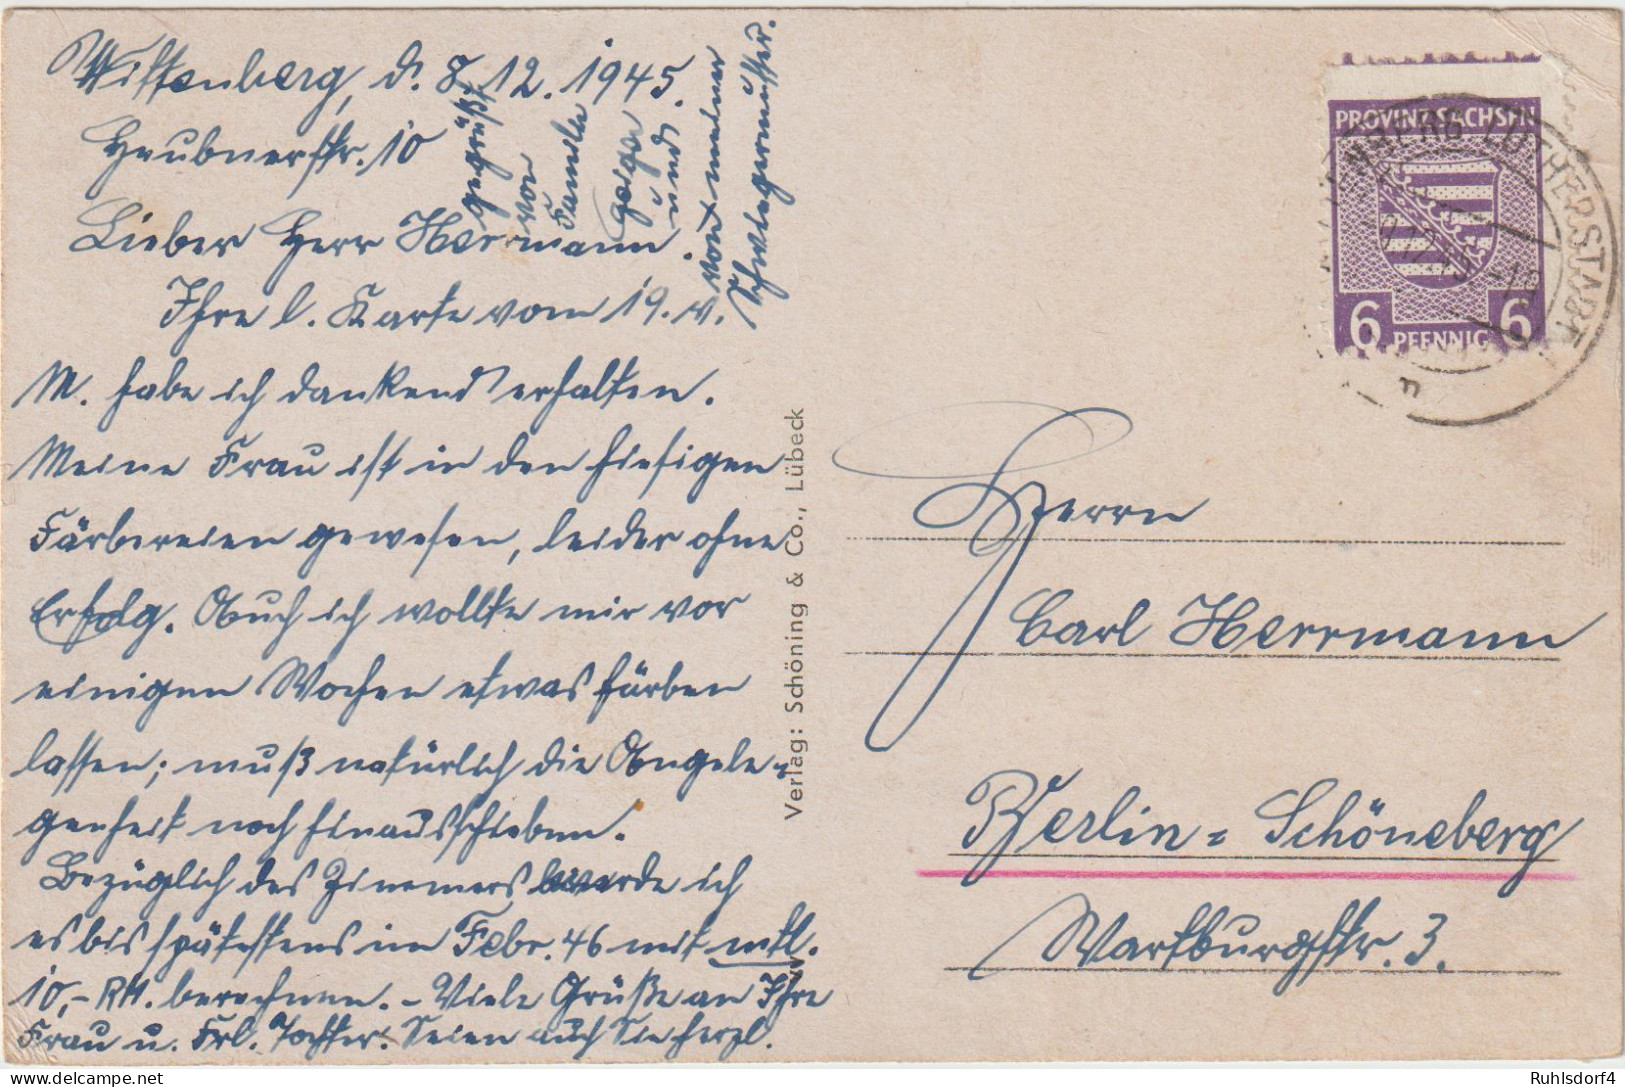 Wittenberg, d. 8.12.1945.
Heubnerstr. 10
Lieber Herr Herrmann!
Ihre l. Karte vom 19. v.
M. habe ich dankend erhalten.
Meine Frau ist in den hiesigen
Färbereien gewesen, leider ohne
Erfolg. Auch ich wollte mir vor
einigen Wochen etwas färben
lassen; muß natürlich die Angele-
genheit noch hinausschieben.
Bezüglich des Zimmers werde ich
es bis spätestens im Febr. 46 mit mtl.
10,- RM. berechnen. - Viele Grüße an Ihre
Frau u. Frl. Tochter. Seien auch Sie herzl.
gegrüßt
von
Familie
und
von meiner
Schwiegermutter.
Verlag: Schöning & Co., Lübeck
PROVINZ SACHSEN
6 PFENNIG 6
LUTHERSTADT
Herrn
Carl Herrmann
Berlin-Schöneberg
Wartburgstr. 3.
Ruhlsdorf4